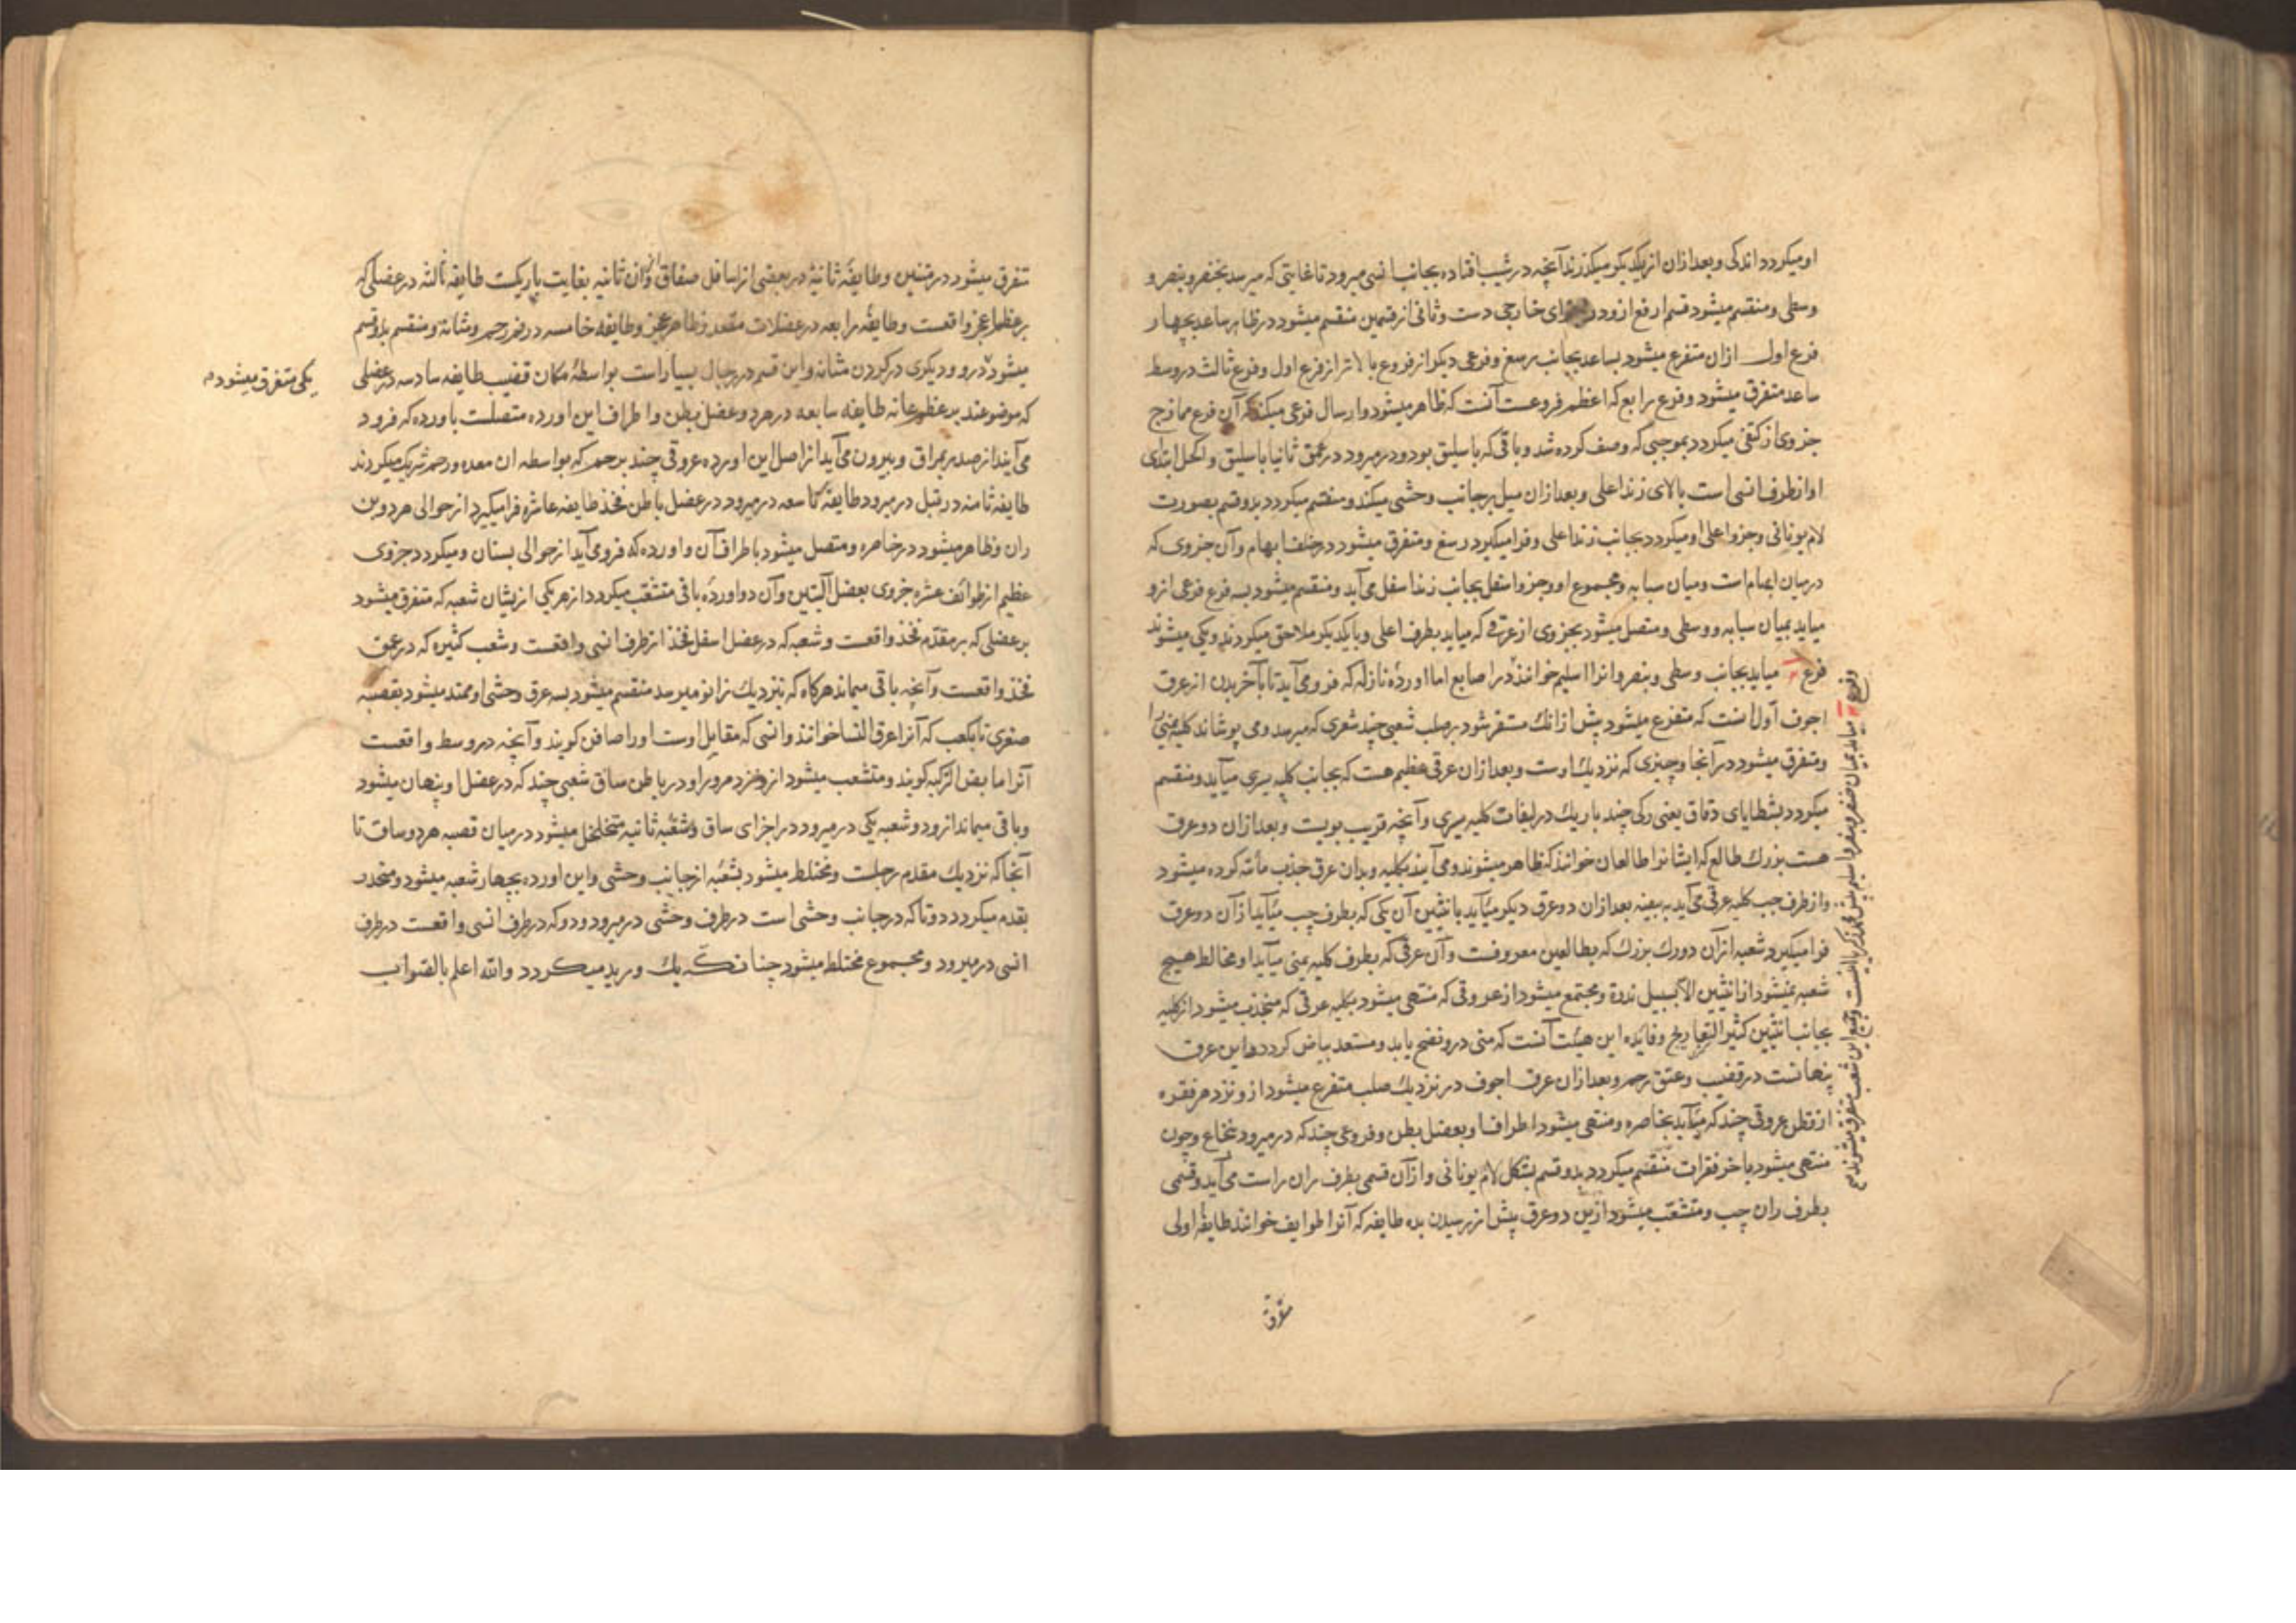 او میکردد اندکی و بعد ازان از یکدیکر میکذرند آنچه در شیب افتاده بجانب انسی میرود تا غایتی که میرسد بخنصر و بنصر و
وسطی و منقسم میشود قسم ارفع ازو در اجزای خارجی دست و ثانی از قسمین منقسم میشود در ظاهر ساعد بچهار
فرع اول ازان متفرع میشود بساعد بجانب رسغ و فرعی دیکر از فروع بالاتر از فرع اول و فرع ثالث در وسط
ساعد متفرق میشود و فرع رابع که اعظم فروعست آنست که ظاهر میشود و ارسال فرعی میکند که آن فرع ممازج
جزوی از کتفی میکردد بموجبی که وصف کرده شد و باقی که باسلیق بود و در میرود در عمق ثانیا باسلیق و اکحل ابتدای
او از طرف انسی است بالای زند اعلی و بعد ازان میل بر جانب وحشی میکند و منقسم میکردد بدو قسم بصورت
لام یونانی و جزو اعلی او میکردد بجانب زند اعلی و فرا میکیرد رسغ و متفرق میشود در خلف ابهام و آن جزوی که
در میان ابهام است و میان سبابه و مجموع او و جزو اسفل بجانب زند اسفل می آید و منقسم میشود بسه فرع فرعی ازو
میاید بمیان سبابه و وسطی و متصل میشود بجزوی از عرقی که میاید بطرف اعلی و با یکدیکر ملاحق میکردند و یکی میشوند
فرع ۲ میاید بجانب وسطی و بنصر و انرا اسیلم خوانند در اصابع اما اوردهٔ نازله که فرو می آید تا بآخر بدن از عرق
اجوف اول آنست که متفرع میشود پیش ازانک مستقر شود بر صلب شعبی چند شعری که میرسد و می پوشاند کلیه یمنی را
و متفرق میشود در آنجا و چیزی که نزدیک اوست و بعد ازان عرقی عظیم هست که بجانب کلیه یسری میآید و منقسم
میکردد بشظایای دقاق یعنی رکی چند باریک در لفافت کلیه یسری و آنچه قریب بویست و بعد ازان دو عرق
هست بزرک طالع که ایشانرا طالعان خوانند که ظاهر میشوند و می آیند بکلیه و بدان عرق جذب مائه کرده میشود
و از طرف چپ کلیه عرقی می آید به بیضه بعد ازان دو عرق دیکر میآید بانثیین آن یکی که بطرف چپ میآید ازان دو عرق
فرا میکیرد شعبه ازان دو رک بزرک که بطالعین معروفست و آن عرقی که بطرف کلیه یمنی میآید او مخالط هیچ
شعبه نمیشود از انثیین الا بسبیل ندرة و مجتمع میشود از عروقی که منتهی میشود بکلیه عرقی که منجذب میشود از کلیه
بجانب انثیین کثیر التعاریج و فایده این هیئت آنست که منی درو نضج یابد و مستعد بیاض کردد و این عرق
پنهانست در قضیب و عنق رحم و بعد ازان عرق اجوف در نزدیک صلب متفرع میشود ازو نزد هر فقره
از قطن عروقی چند که میآید بخاصره و منتهی میشود اطراف او بعضل بطن و فروعی چند که در میرود نخاع و چون
منتهی میشود باخر فقرات منقسم میکردد بدو قسم بشکل لام یونانی و ازان قسمی بطرف ران راست می آید و قسمی
بطرف ران چپ و متشعب میشود ازین دو عرق پیش از رسیدن بده طایفه که آنرا طوایف خوانند طایفه اولی
متفرق
وفرع ۳ میاید بمیان خنصر و بنصر و اسیلم پیش محمد زکریا اینست و جمیع این شعب متفرق میشوند
تفرق میشود در متنین و طایفهٔ ثانیه در بعضی از اسافل صفاق و ان ثانیه بغایت باریکست طایفه ثالثه در عضلی که
بر عظم عجز واقعست و طایفهٔ رابعه در عضلات مقعد و ظاهر عجز و طایفه خامسه در فم رحم و مثانه و منقسم بدو قسم
میشود درو و دیکری در کردن مثانه و این قسم در رجال بسیار است بواسطهٔ مکان قضیب طایفه سادسه در عضلی
یکی متفرق میشود م
که موضوعند بر عظم عانه طایفه سابعه در هر دو عضل بطن و اطراف این اورده متصلست باورده که فرود
می آیند از صدر بمراق و بیرون می آید از اصل این اورده عروقی چند برحم که بواسطه ان معده و رحم شریک میکردند
طایفهٔ ثامنه در قبل در میرود طایفهٔ تاسعه در میرود در عضل باطن فخذ طایفه عاشره فرا میکیرد از حوالی هر دو بن
ران و ظاهر میشود در خاصره و متصل میشود باطراف آن و اورده که فرو می آید از حوالی پستان و میکردد جزوی
عظیم از طوائف عشره جزوی بعضل آلیتین و آن دو اوردهٔ باقی متشعب میکردد از هر یکی ازیشان شعبه که متفرق میشود
بر عضلی که بر مقدم فخذ واقعست و شعبه که در عضل اسفل فخذ از طرف انسی واقعست و شعب کثیره که در عمق
فخذ واقعست و آنچه باقی میماند هرکاه که نزدیک زانو میرسد منقسم میشود بسه عرق وحشی او ممتد میشود بقصبه
صغری تا بکعب که آنرا عرق النسا خوانند و انسی که مقابل اوست او را صافن کویند و آنچه در وسط واقعست
آنرا مابض الرکبه کویند و متشعب میشود ازو نزد مرور او در باطن ساق شعبی چند که در عضل او پنهان میشود
و باقی میماند ازو دو شعبه یکی در میرود در اجزای ساق و شعبهٔ ثانیه متخلخل میشود در میان قصبه هر دو ساق تا
آنجا که نزدیک مقدم رجلست و مختلط میشود بشعبه از جانب وحشی و این اورده بچهار شعبه میشود و منحدر
بقدم میکردد دوتا که در جانب وحشی است در طرف وحشی در میرود و دو که در طرف انسی واقعست در طرف
انسی در میرود و مجموع مختلط میشود چنانکه یک ورید میکردد والله اعلم بالصواب